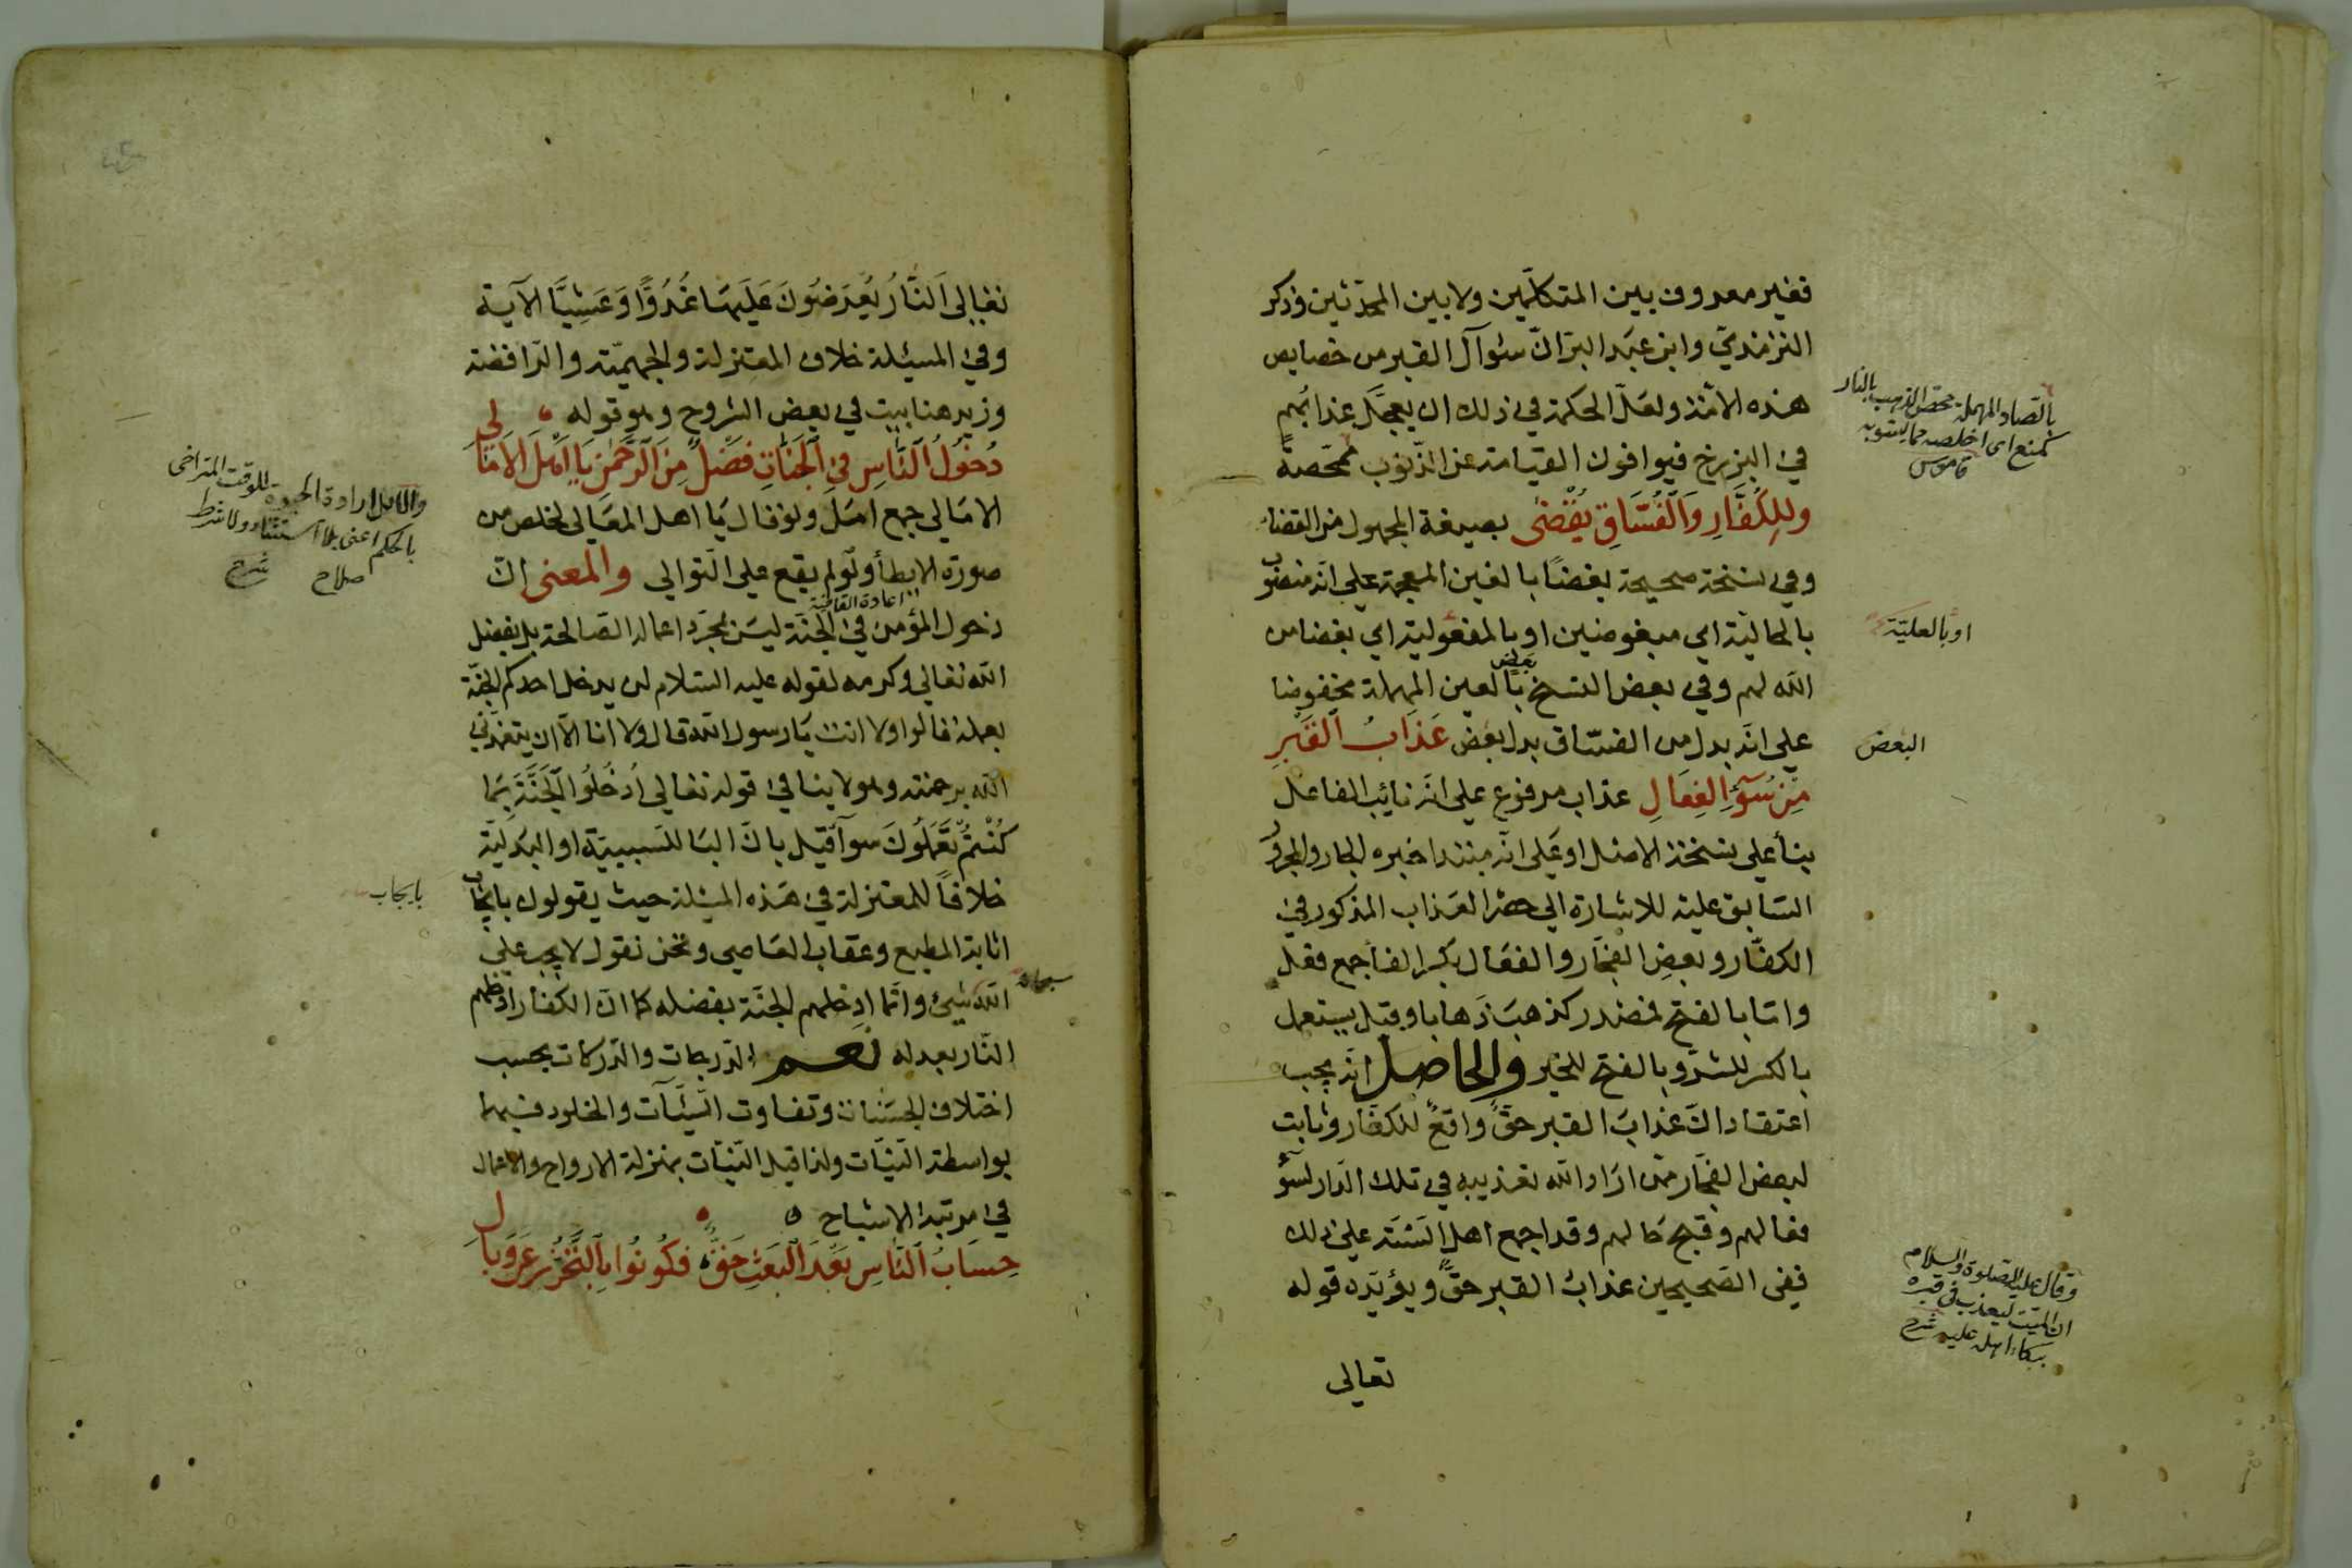 فغير معروف بين المتكلّمين ولا بين المحدّثين وذكر
الترمذيّ وابن عبد البرّ انّ سئوآل القبر من خصايص
هذه الامّة ولعلّ الحكمة في ذلك ان يعجّل عذابُهم
في البرزخ فيوافون القيامة عن الذّنوب ممحّصةً
وللكُفَّارِ وَالْفُسَّاقِ يُقْضٰى بصيغة المجهول من القضاء
وفي نسخة صحيحة بغضًا بالغين المعجمة على انّه منصوب
بالحاليّة اي مبغوضين او بالمفعوليّة اي بغضا من
الله لهم وفي بعض النسخ بعض بالعين المهملة مخفوضا
على انّه بدل من الفسّاق بدل بعض عَذَابُ الْقَبْرِ
مِنْ سُوٓءِ الفِعَالِ عذاب مرفوع على انّه نائب الفاعل
بنأ على نسخة الاصل او على انّه مبتدا خبره الجار والمجرور
السّابق عليه للاشارة الى حصر العذاب المذكور في
الكفّار وبعضِ الفجّار والفعال بكسر الفا جمع فعل
وامّا بالفتح فمصدر كذهب ذَهابا وقيل يستعمل
بالكسر للشرّ وبالفتح للخير والحاصل انّه يجب
اعتقاد انّ عذابَ القبر حقٌّ واقعٌ للكفّار وثابت
لبعض الفجّار ممّن ارَاد الله تعذيبه في تلك الدّار لسوٓء
فعالهم وقبح حالهم وقد اجمع اهل السّنّة على ذلك
ففي الصّحيحين عذابُ القبر حقٌّ ويؤيّده قوله
تعالى
بالصّاد المهملة محّص الذهب بالنار
كمنع اى اخلصه مما يشوبه
قاموس
او بالعليّة
البعض
وقال عليه الصلوة والسلام
ان الميّت ليعذب في قبره
ببكاء اهله عليه شرح
تعالى اَلنَّارُ يُعْرَضُونَ عَلَيهَا غُدُوًّا وَعَشِيًّا الآية
وفي المسيئلة خلاف المعتزلة والجهميّة والرّافضة
وزيد هنا بيت في بعض الشروح وهو قوله
دُخُولُ النَّاسِ فِي الْجَنَّاتِ فَضْلٌ مِنَ الرَّحْمٰنِ يَا اَهْلَ الاَمَالِى
الامَالي جمع امَل ولو قال يَا اهل المعَالي لخلص من
صورة الايطأ ولو لم يقع على التّوالي والمعنى انّ
اعادة القافية
دخول المؤمن في الجنّة ليسَ بمجرّد اعماله الصّالحة بل بفضل
الله تعالى وكرمه لقوله عليه السّلام لن يدخل احدكم الجنّة
بعمله قالوا ولا انت يَا رسول الله قال ولا انا الّا ان يتغمّدني
الله برحمته وهو لا ينافي قوله تعالى اُدْخُلُوا الْجَنَّةَ بِمَا
كُنْتُمْ تَعْمَلُونَ سوآ قيل بانّ البَا للسَببيّة او البَدَليّة
خلافاً للمعتزلة في هَذه المسئلة حيث يقولون بايجاب
اثابة المطيع وعقاب العَاصي ونحن نقول لا يجب على
الله شيئ وانّما ادخلهم الجنّة بفضله كما انّ الكفّار ادخلهم
النّار بعدله نعم الدّرجات والدّركات بحسب
اختلاف الحسَنات وتفاوت السّيّئآت والخلود فيهما
بواسطة النّيّات ولذا قيل النّيّات بمنزلة الارواح والاعمال
في مرتبة الاشباح
حِسَابُ النَّاسِ بَعْدَ الْبَعْثِ حَقٌّ فَكُونُوا بِالتَّحَرُّزِ عَنْ وَبَالِ
للوقت المتراخى
بالحكم اعنى بلا استثناء ولا شرط
صلاح شرح
بايجاب
سبحانه